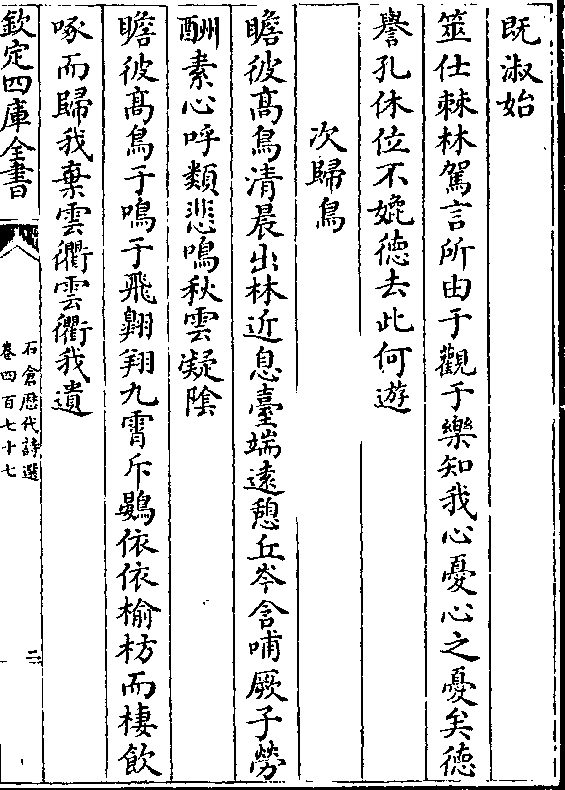 既淑始
筮仕棘林駕言所由于觀于樂知我心憂心之憂矣德
譽孔休位不媲徳去此何遊
次歸鳥
瞻彼髙鳥清晨出林近息臺端遠憩丘岑含哺厥子勞
酬素心呼類悲鳴秋雲凝陰
瞻彼髙鳥于鳴于飛翺翔九霄斥鷃依依榆枋而棲飲
啄而歸我棄雲衢雲衢我遺
欽定四庫全書
石倉歴代詩選
卷四百七十七
二